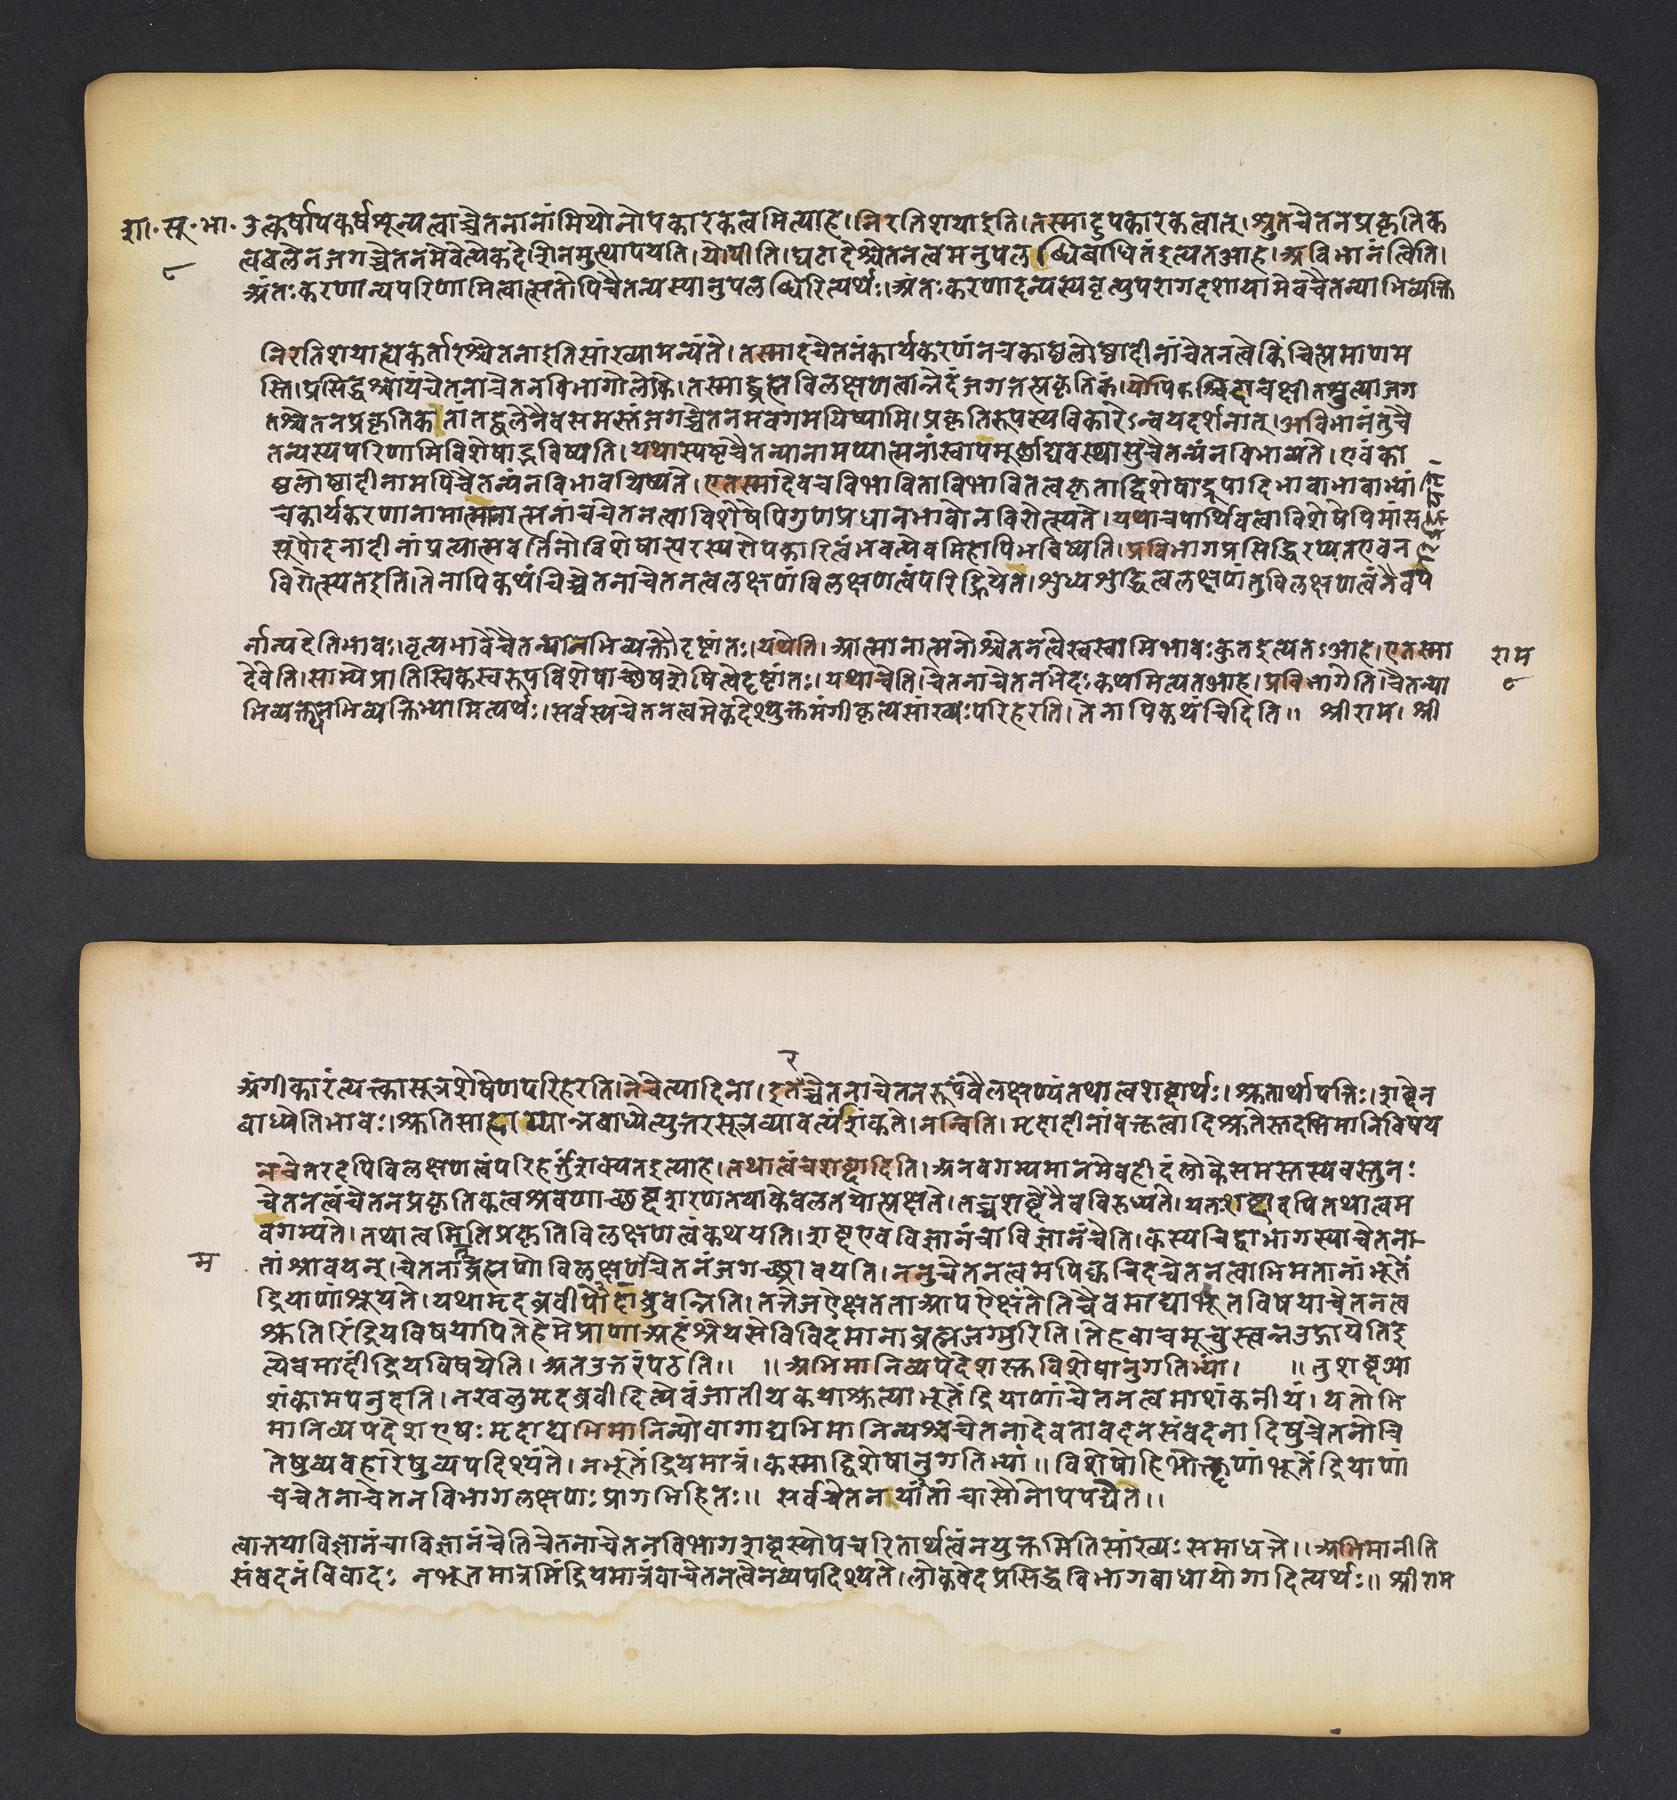 शा॰ सू॰ भा॰ उत्कर्षापकर्षशून्यत्वाच्चेतनानांमिथोनोपकारकत्वमित्याह।निरतिशयाइति।तस्मादुपकारकत्वात्।श्रुतचेतनप्रकृतिक
त्वबलेनजगच्चेतनमेवेत्येकदेशिनमुत्थापयति।योपीति।घटादेश्चेतनत्वमनुपलब्धिबाधितंइत्यतआह।अविभानंत्विति।
८
अंतःकरणान्यपरिणामित्वात्सतोपिचैतन्यस्यानुपलब्धिरित्यर्थः।अंतःकरणादन्यस्यवृत्युपरागदशायामेवचैतन्याभिव्यक्ति
निरतिशयाह्यकर्तारश्चेतनाइतिसांख्यामन्यंते।तस्मादचेतनंकार्यकरणंनचकाष्ठलोष्ठादीनांचेतनत्वेकिंचित्प्रमाणम
स्ति।प्रसिद्धश्चायंचेतनाचेतनविभागोलोके।तस्माद्ब्रह्मविलक्षणत्वान्नेदंजगत्तत्प्रकृतिकं।योपिकश्चिदाचक्षीतश्रुत्याजग
तश्चेतनप्रकृतिकतांतद्बलेनैवसमस्तंजगच्चेतनमवगमयिष्यामि।प्रकृतिरूपस्यविकारेऽन्वयदर्शनात्।अविभानंतुचै
तन्यस्यपरिणामविशेषाद्भविष्यति।यथास्पष्टचैतन्यानामप्यात्मनांस्वापमूर्छाद्यवस्थासुचैतन्यंनविभाव्यते।एवंका
ष्ठलोष्ठादीनामपिचैतन्यंनविभावयिष्यते।एतस्मादेवचविभाविताविभावितत्वकृताद्विशेषाद्रूपादिभावाभावाभ्यां
चकार्यकरणानामात्मनांचचेतनत्वाविशेषेपिगुणप्रधानभावोनविरोत्स्यते।यथाचपार्थिवत्वाविशेषेपिमांस
सूपौदनादीनांप्रत्यात्मवर्तिनोविशेषात्परस्परोपकारित्वंभवत्येवमिहापिभविष्यति।प्रविभागप्रसिद्धिरप्यतएवन
विरोत्स्यतइति।तेनापिकथंचिच्चेतनाचेतनत्वलक्षणंविलक्षणत्वंपरिह्रियेत।शुध्यशुद्धित्वलक्षणंतुविलक्षणत्वंनैवप
र्नान्यदेतिभावः।वृत्यभावेचैतन्यानभिव्यक्तौदृष्टांतः।यथेति।आत्मानात्मनोश्चेतनत्वेस्वस्वामिभावःकुतइत्यतआह।एतस्मा
राम
देवेति।साम्येप्रातिस्विकस्वरूपविशेषाच्छेषशेषित्वेदृष्टांतः।यथाचेति।चेतनाचेतनभेदःकथमित्यतआह।प्रविभागेति।चैतन्या
८
भिव्यक्त्यनभिव्यक्तिभ्यामित्यर्थः।सर्वस्यचेतनत्वमेकदेश्युक्तमंगीकृत्यसांख्यःपरिहरति।तेनापिकथंचिदिति॥ श्रीराम। श्री
र
अंगीकारंत्यक्त्वासूत्रशेषेणपरिहरति।नेचेत्यादिना।इतच्चेतनाचेतनरूपंवैलक्षण्यंतथात्वशब्दार्थः।श्रुतार्थापत्तिः।शब्देन
बाध्येतिभावः।श्रुतिसाहाय्यान्नबाध्येत्युत्तरसूत्रव्यावर्त्यंशंकते।नन्विति।मृदादीनांवक्तृत्वादिश्रुतेस्तदभिमानिविषय
नचेतरदपिविलक्षणत्वंपरिहर्तुंशक्यतइत्याह।तथात्वंचशब्दादिति।अनवगम्यमानमेवहीदंलोकेसमस्तस्यवस्तुनः
चेतनत्वंचेतनप्रकृतिकत्वश्रवणाच्छब्दशरणतयाकेवलतयोत्प्रेक्षते।तच्चशब्देनैवविरुध्यते।यतःशब्दादपितथात्वम
वगम्यते।तथात्वमितिप्रकृतिविलक्षणत्वंकथयति।शब्दएवविज्ञानंचाविज्ञानंचेति।कस्यचिद्विभागस्याचेतना-
म
तांश्रावयन्।चेतनाद्ब्रह्मणोविलक्षणंचेतनंजगच्छ्रावयति।ननुचेतनत्वमपिक्वचिदचेतनत्वाभिमतानांभूतें
द्रियाणांश्रूयते।यथामृदब्रवीत्आपोब्रुवन्निति।तत्तेजऐक्षतताआपऐक्षंतेतिचैवमाद्याभूतविषयाचेतनत्व
श्रुतिरिंद्रियविषयापितेहेमेप्राणाअहंश्रेयसेविविदमानाब्रह्मजग्मुरिति।तेहवाचमूचुस्त्वन्नउद्गायेतिइ
त्येवमादींद्रियविषयेति।अतउत्तरंपठति॥ ॥अभिमानिव्यपदेशस्तुविशेषानुगतिभ्यां। ॥तुशब्दआ
शंकामपनुदति।नखलुमृदब्रवीदित्येवंजातीयकयाश्रुत्याभूतेंद्रियाणांचेतनत्वमाशंकनीयं।यतोभि
मानिव्यपदेशएषःमृदाद्यभिमानिन्योवागाद्यभिमानिन्यश्चचेतनादेवतावदनसंवदनादिषुचेतनोचि
तेषुव्यवहारेषुव्यपदिश्यंते।नभूतेंद्रियमात्रं।कस्माद्विशेषानुगतिभ्यां॥विशेषोहिभोक्तॄणांभूतेंद्रियाणां
चचेतनाचेतनविभागलक्षणःप्रागभिहितः॥ सर्वचेतनायांतौचासौनोपपद्येते॥
त्वात्तयाविज्ञानंचाविज्ञानंचेतिचेतनाचेतनविभागशब्दस्योपचरितार्थत्वंनयुक्तमितिसांख्यःसमाधत्ते॥अभिमानीति
संवदनंविवादः नभूतमात्रमिंद्रियमात्रंवाचेतनत्वेनव्यपदिश्यते।लोकवेदप्रसिद्धविभागबाधायोगादित्यर्थः॥ श्रीराम